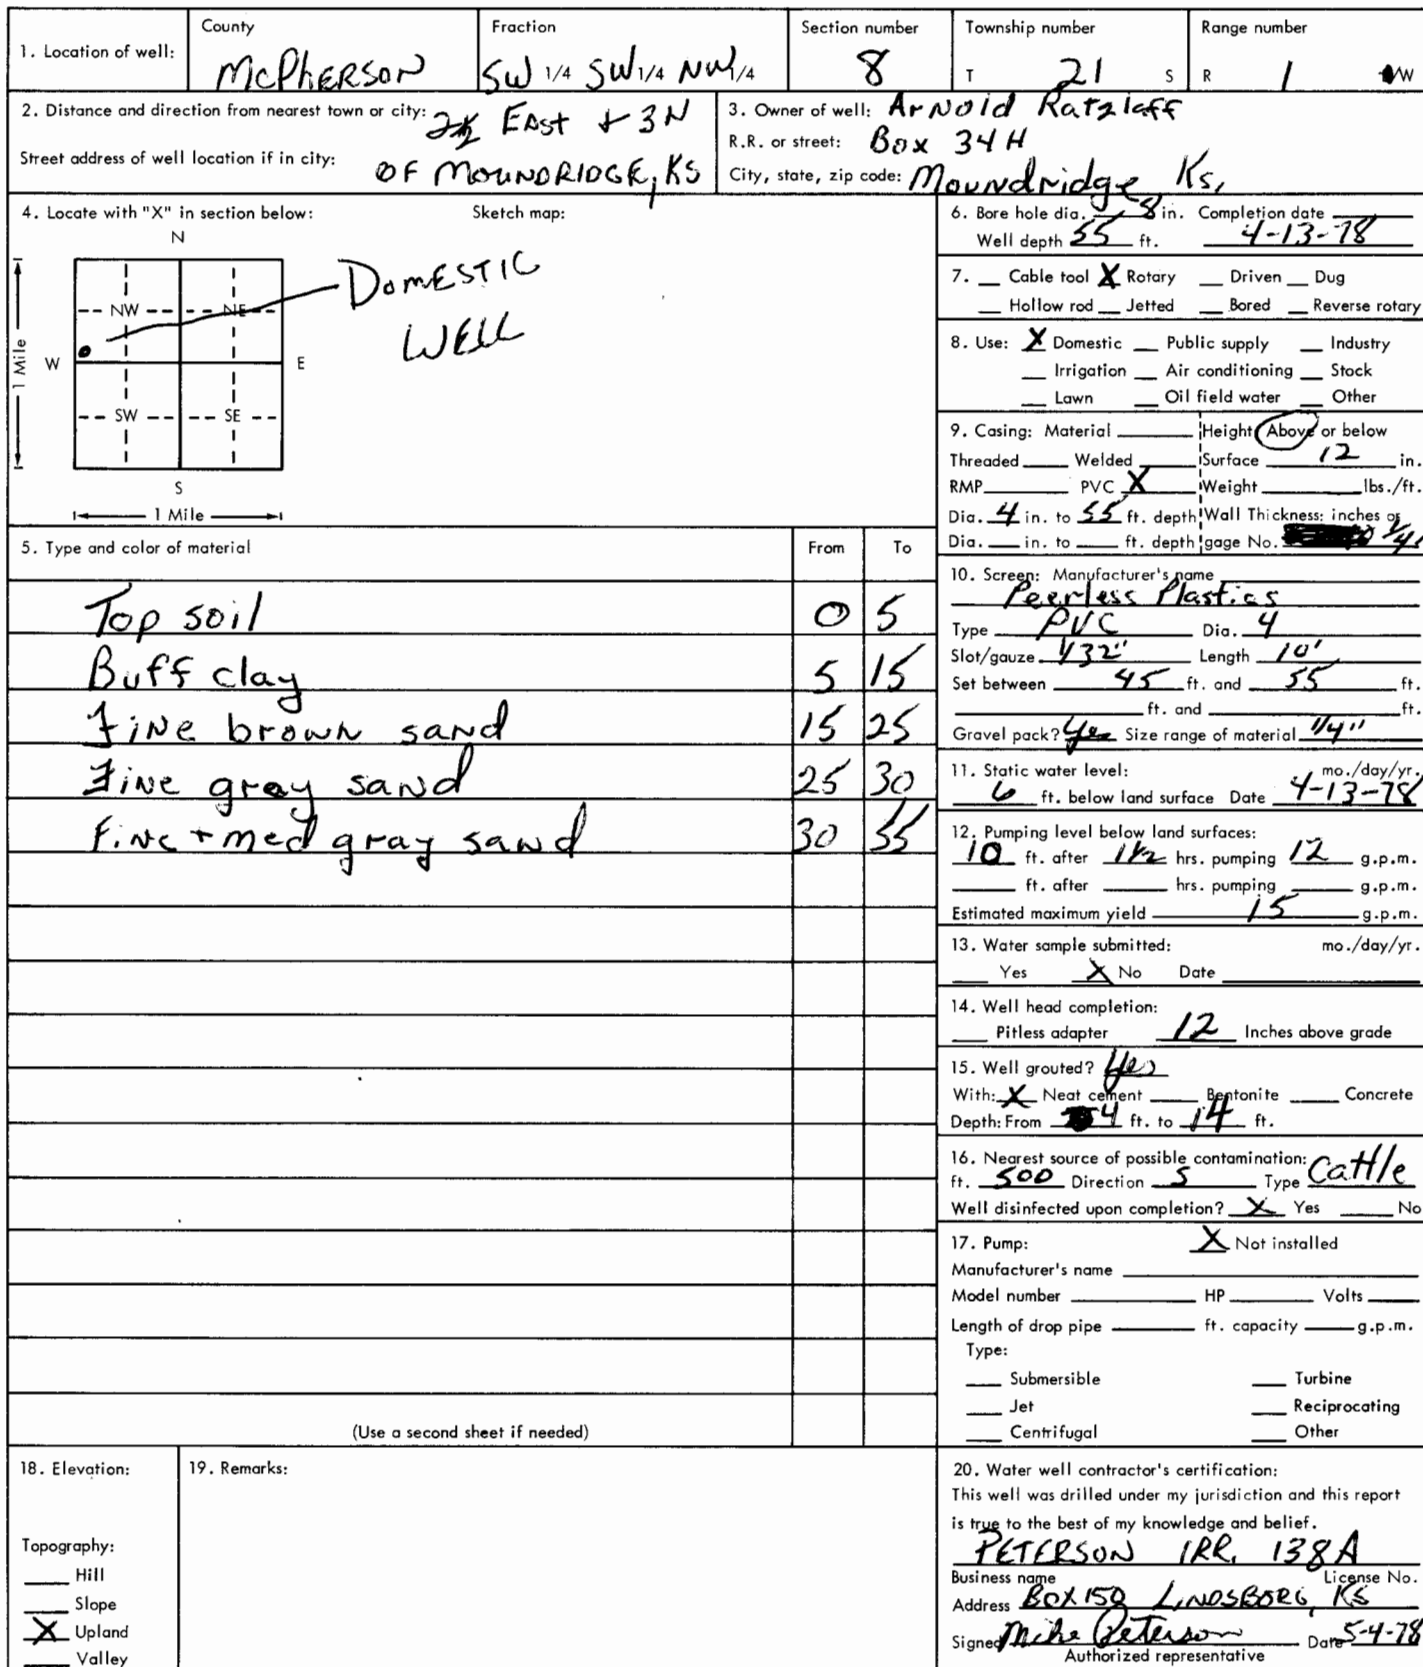 1. Location of well: County McPherson Fraction SW 1/4 SW 1/4 NW 1/4 Section number 8 Township number T 21 S Range number R 1 W
2. Distance and direction from nearest town or city: East + 3N
Street address of well location if in city: OF MOUNDRIDGE, KS
3. Owner of well: Arnold Ratzlaff
R.R. or street: Box 34H
City, state, zip code: Moundridge, Ks.
4. Locate with "X" in section below: Sketch map:
N
NW NE
W E
SW SE
S
1 Mile
1 Mile
DOMESTIC
WELL
5. Type and color of material From To
Top soil 0 5
Buff clay 5 15
Fine brown sand 15 25
Fine gray sand 25 30
Fine + med gray sand 30 55
(Use a second sheet if needed)
6. Bore hole dia. 8 in. Completion date
Well depth 55 ft. 4-13-78
7. __ Cable tool X Rotary __ Driven __ Dug
__ Hollow rod __ Jetted __ Bored __ Reverse rotary
8. Use: X Domestic __ Public supply __ Industry
__ Irrigation __ Air conditioning __ Stock
__ Lawn __ Oil field water __ Other
9. Casing: Material ____ Height Above or below
Threaded ____ Welded ____ Surface 12 in.
RMP ____ PVC X Weight ____ lbs./ft.
Dia. 4 in. to 55 ft. depth Wall Thickness: inches or
Dia. ____ in. to ____ ft. depth gage No. 1/4
10. Screen: Manufacturer's name
Peerless Plastics
Type PVC Dia. 4
Slot/gauze 1/32" Length 10'
Set between 45 ft. and 55 ft.
____ ft. and ____ ft.
Gravel pack? Yes Size range of material 1/4"
11. Static water level: mo./day/yr.
6 ft. below land surface Date 4-13-78
12. Pumping level below land surfaces:
10 ft. after 1 1/2 hrs. pumping 12 g.p.m.
____ ft. after ____ hrs. pumping ____ g.p.m.
Estimated maximum yield 15 g.p.m.
13. Water sample submitted: mo./day/yr.
__ Yes X No Date ____
14. Well head completion:
__ Pitless adapter 12 Inches above grade
15. Well grouted? Yes
With: X Neat cement ____ Bentonite ____ Concrete
Depth: From 4 ft. to 14 ft.
16. Nearest source of possible contamination:
ft. 500 Direction S Type Cattle
Well disinfected upon completion? X Yes ____ No
17. Pump: X Not installed
Manufacturer's name ____
Model number ____ HP ____ Volts ____
Length of drop pipe ____ ft. capacity ____ g.p.m.
Type:
__ Submersible __ Turbine
__ Jet __ Reciprocating
__ Centrifugal __ Other
18. Elevation:
Topography:
__ Hill
__ Slope
X Upland
__ Valley
19. Remarks:
20. Water well contractor's certification:
This well was drilled under my jurisdiction and this report
is true to the best of my knowledge and belief.
PETERSON IRR. 138A
Business name License No.
Address BOX 150 LINDSBORG, KS
Signed Mike Peterson Date 5-4-78
Authorized representative